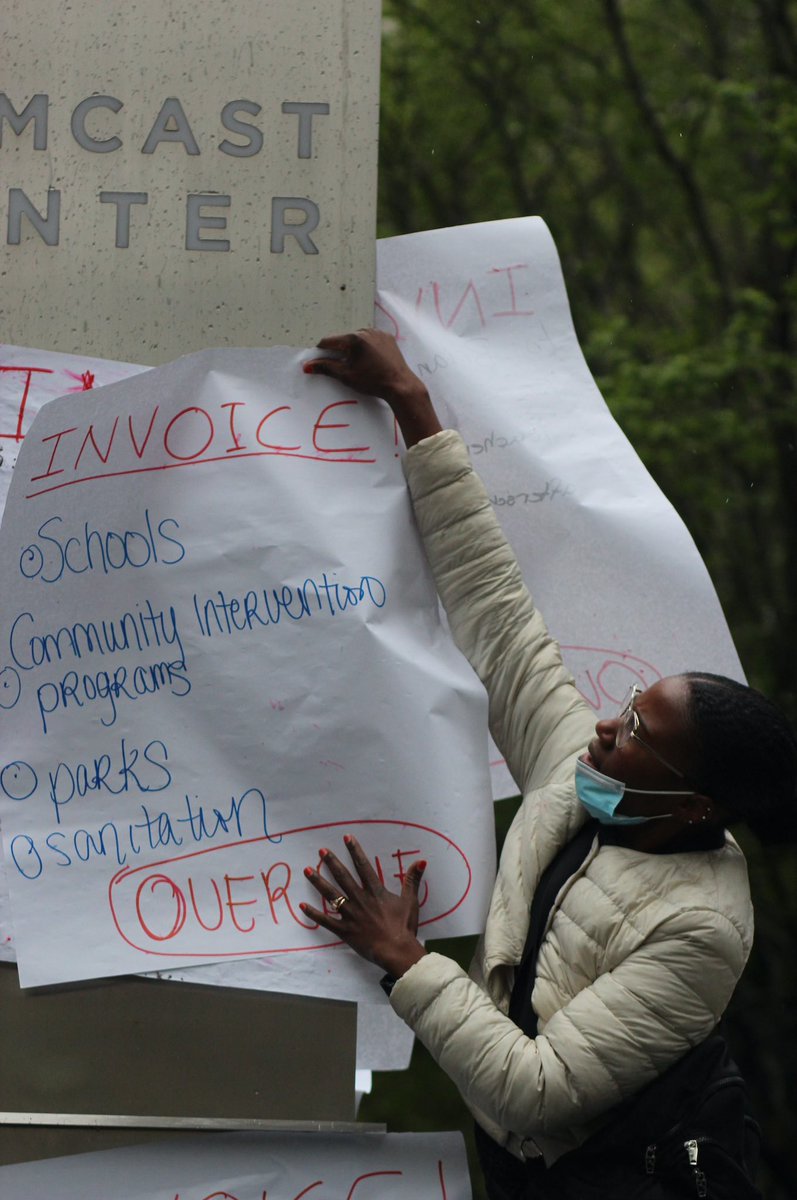 MCAST
NTER
INVOICE!
Schools
Community Intervention
programs
parks
sanitation
OVERDUE